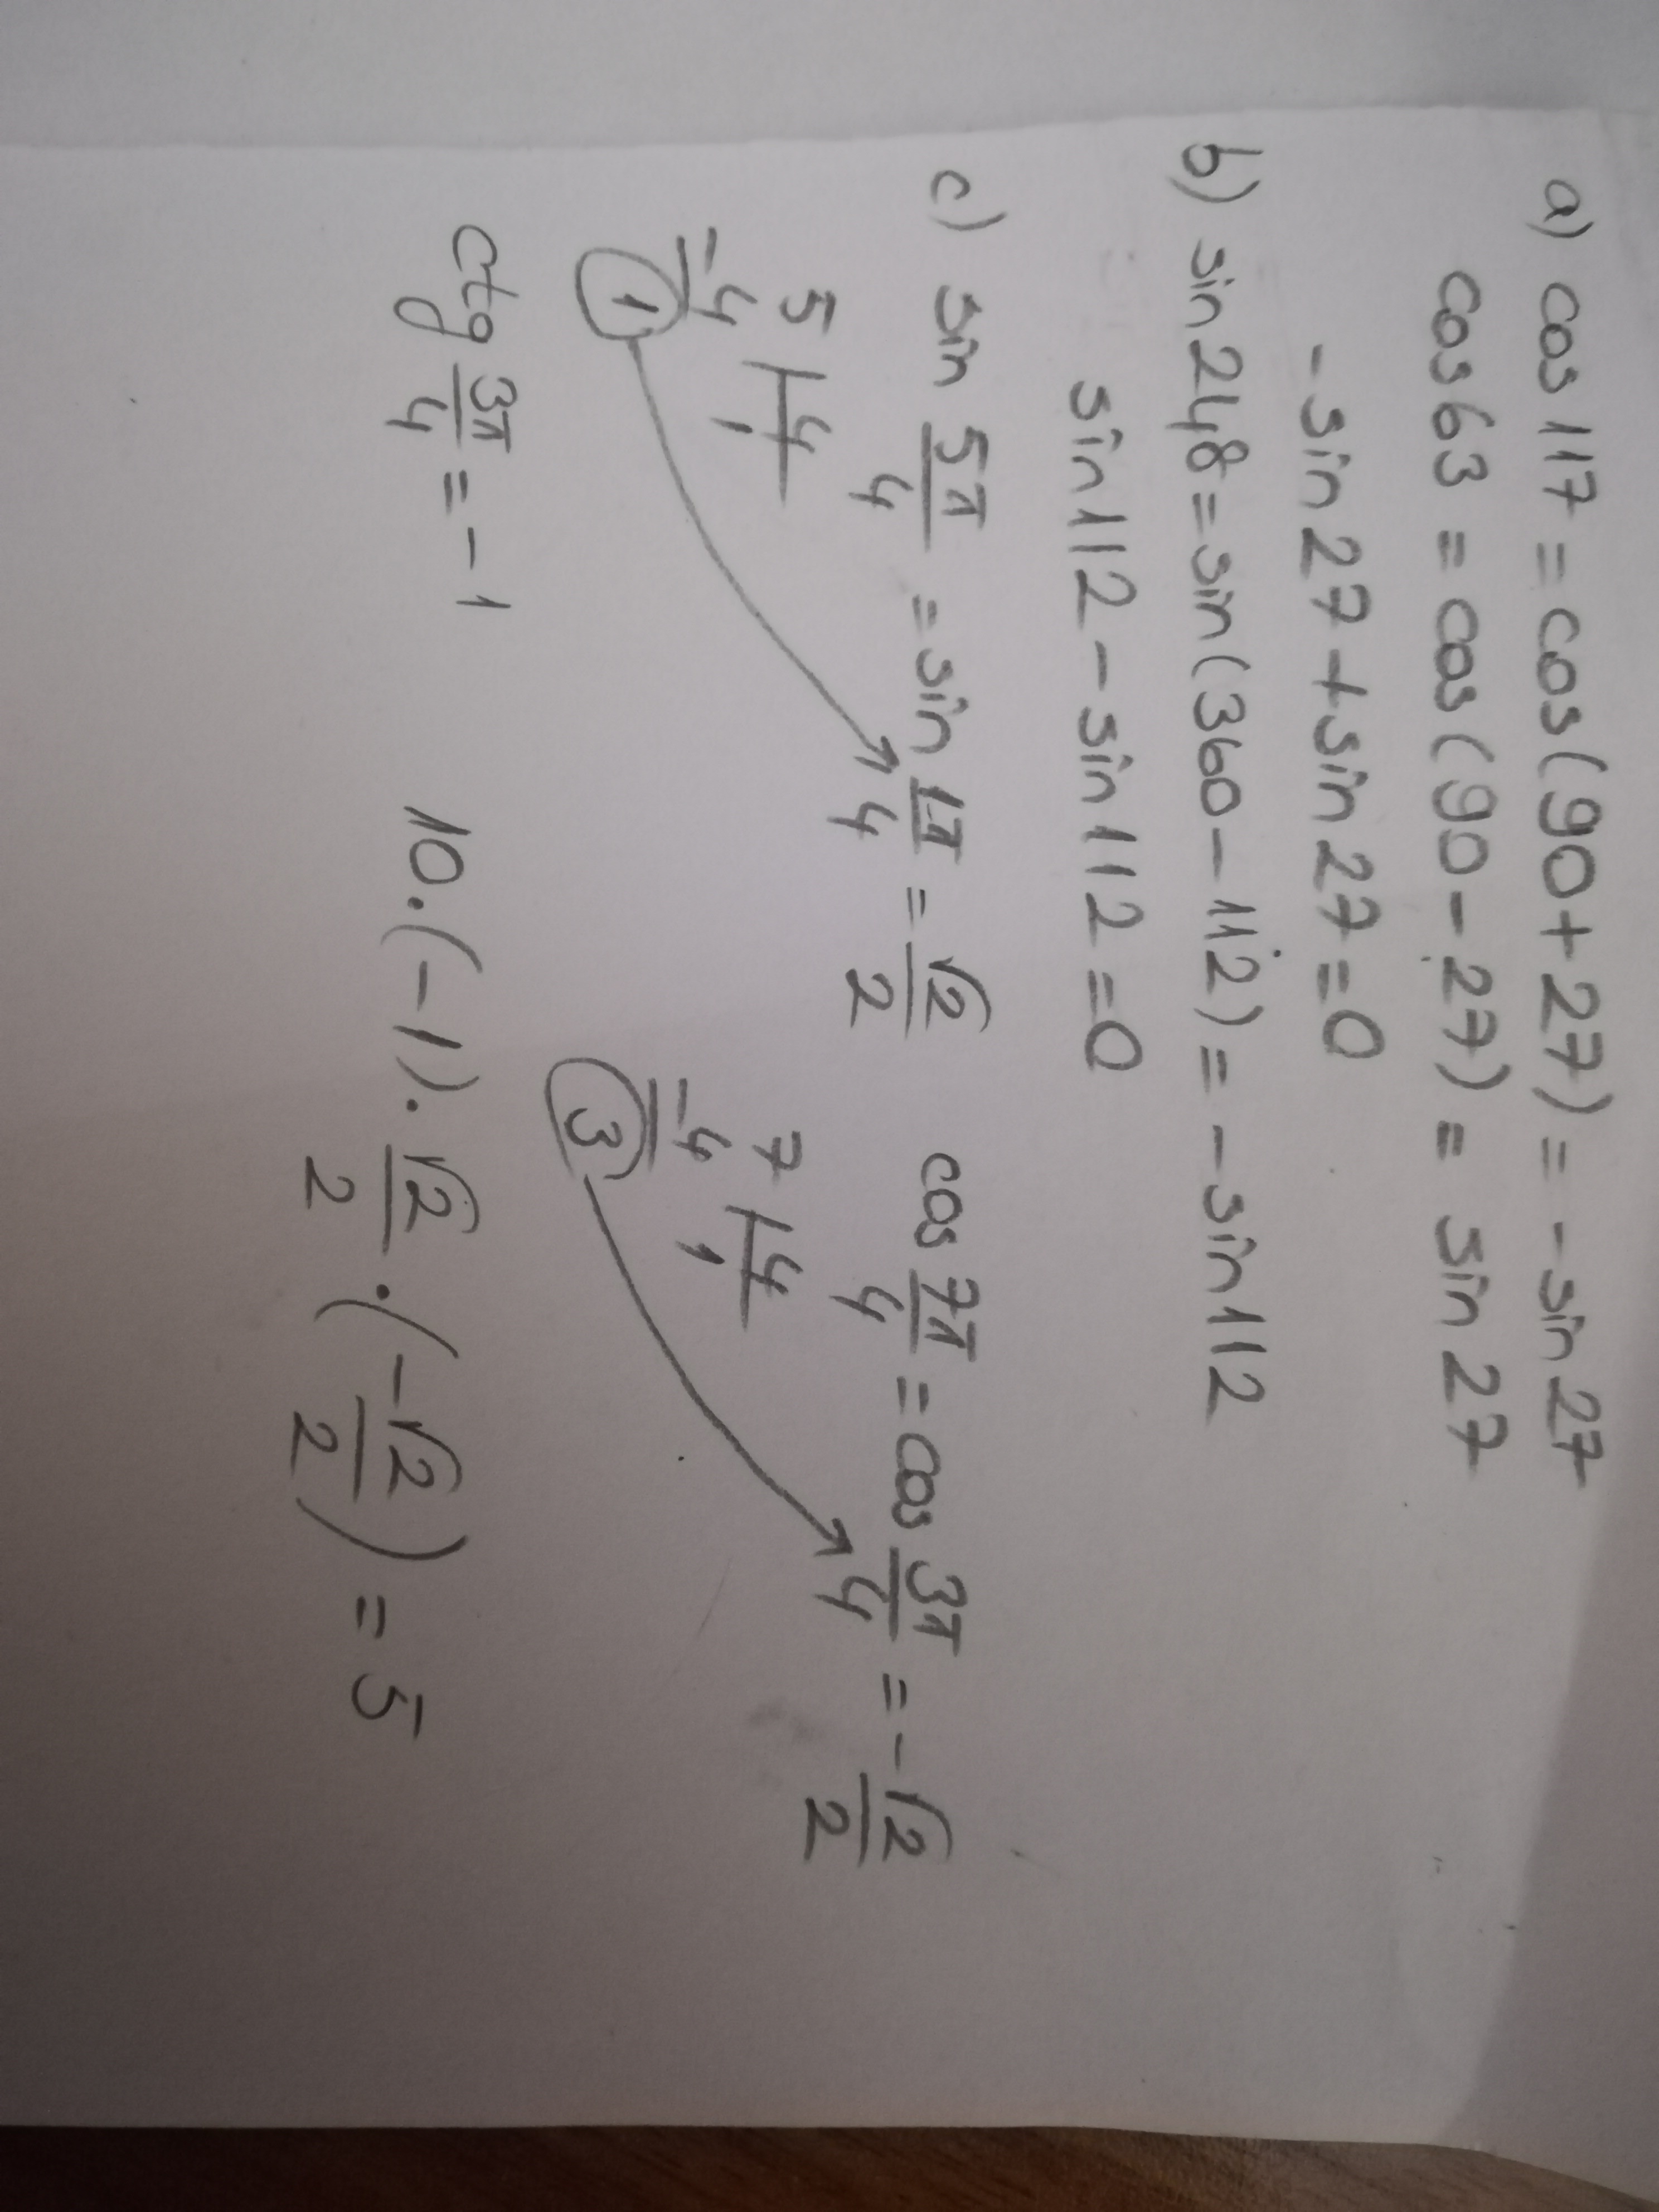 a) cos 117 = cos(90+27) = -sin 27
cos 63 = cos(90-27) = sin 27
-sin 27 + sin 27 = 0
b) sin 248 = sin(360-112) = -sin 112
sin 112 - sin 112 = 0
c) sin 5π/4 = sin 1π/4 = √2/2 cos 7π/4 = cos 3π/4 = -√2/2
5 | 4 7 | 4
-4 1 -4 1
1 3
ctg 3π/4 = -1 10·(-1)·√2/2·(-√2/2) = 5